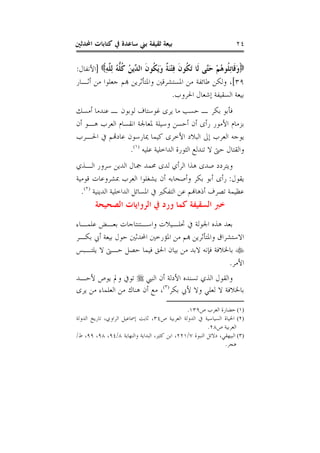 ٢٤ بيعة ثقيفة بني ساعدة في كتابات المحدثين
﴿وَقَاتِلُوهُمْ حَتَّى لَا تَكُونَ فِتْنَةٌ وَيَكُونَ الدِّينُ كُلُّهُ لِلَّهِ﴾ [الأنفال:
٣٩]، ولكن طائفة من المستشرقين والمتأثرين بهم جعلوا من آثـــار
بيعة السقيفة إشعال الحروب.
فأبو بكر ـــ حسب ما يرى غوستاف لوبون ـــ عندما أمسك
بزمام الأمور رأى أن أحسن وسيلة لمعالجة انقسام العرب هـــو أن
يوجه العرب إلى البلاد الأخرى كيما يمارسون عادتهم في الحـــرب
والقتال حتى لا تندلع الثورة الداخلية عليه (١).
ويتردد صدى هذا الرأي لدى محمد جمال الدين سرور الـــذي
يقول: رأى أبو بكر وأصحابه أن يشغلوا العرب بمشروعات قومية
عظيمة تصرف أذهانهم عن التفكير في المسائل الداخلية الدينية (٢).
خبر السقيفة كما ورد في الروايات الصحيحة
بعد هذه الجولة في تحلـــيلات واســـتنتاجات بعـــض علمـــاء
الاستشراق والمتأثرين بهم من المؤرخين المحدثين حول بيعة أبي بكـــر
بالخلافة فإنه لابد من بيان الحق فيما حصل حـــتى لا يلتـــبس
الأمر.
والقول الذي تسنده الأدلة أن النبي ﷺ توفي ولم يوص لأحـــد
بالخلافة لا لعلي ولا لأبي بكر(٣)، مع أن هناك من العلماء من يرى
(١) حضارة العرب ص١٣٩.
(٢) الحياة السياسية في الدولة العربية ص٣٤، ثابت إسماعيل الراوي، تاريخ الدولة
العربية ص٢٨.
(٣) البيهقي، دلائل النبوة ٢٢١/٧، ابن كثير، البداية والنهاية ٩٤/٨، ٩٨، ٩٩، ط/
هجر.